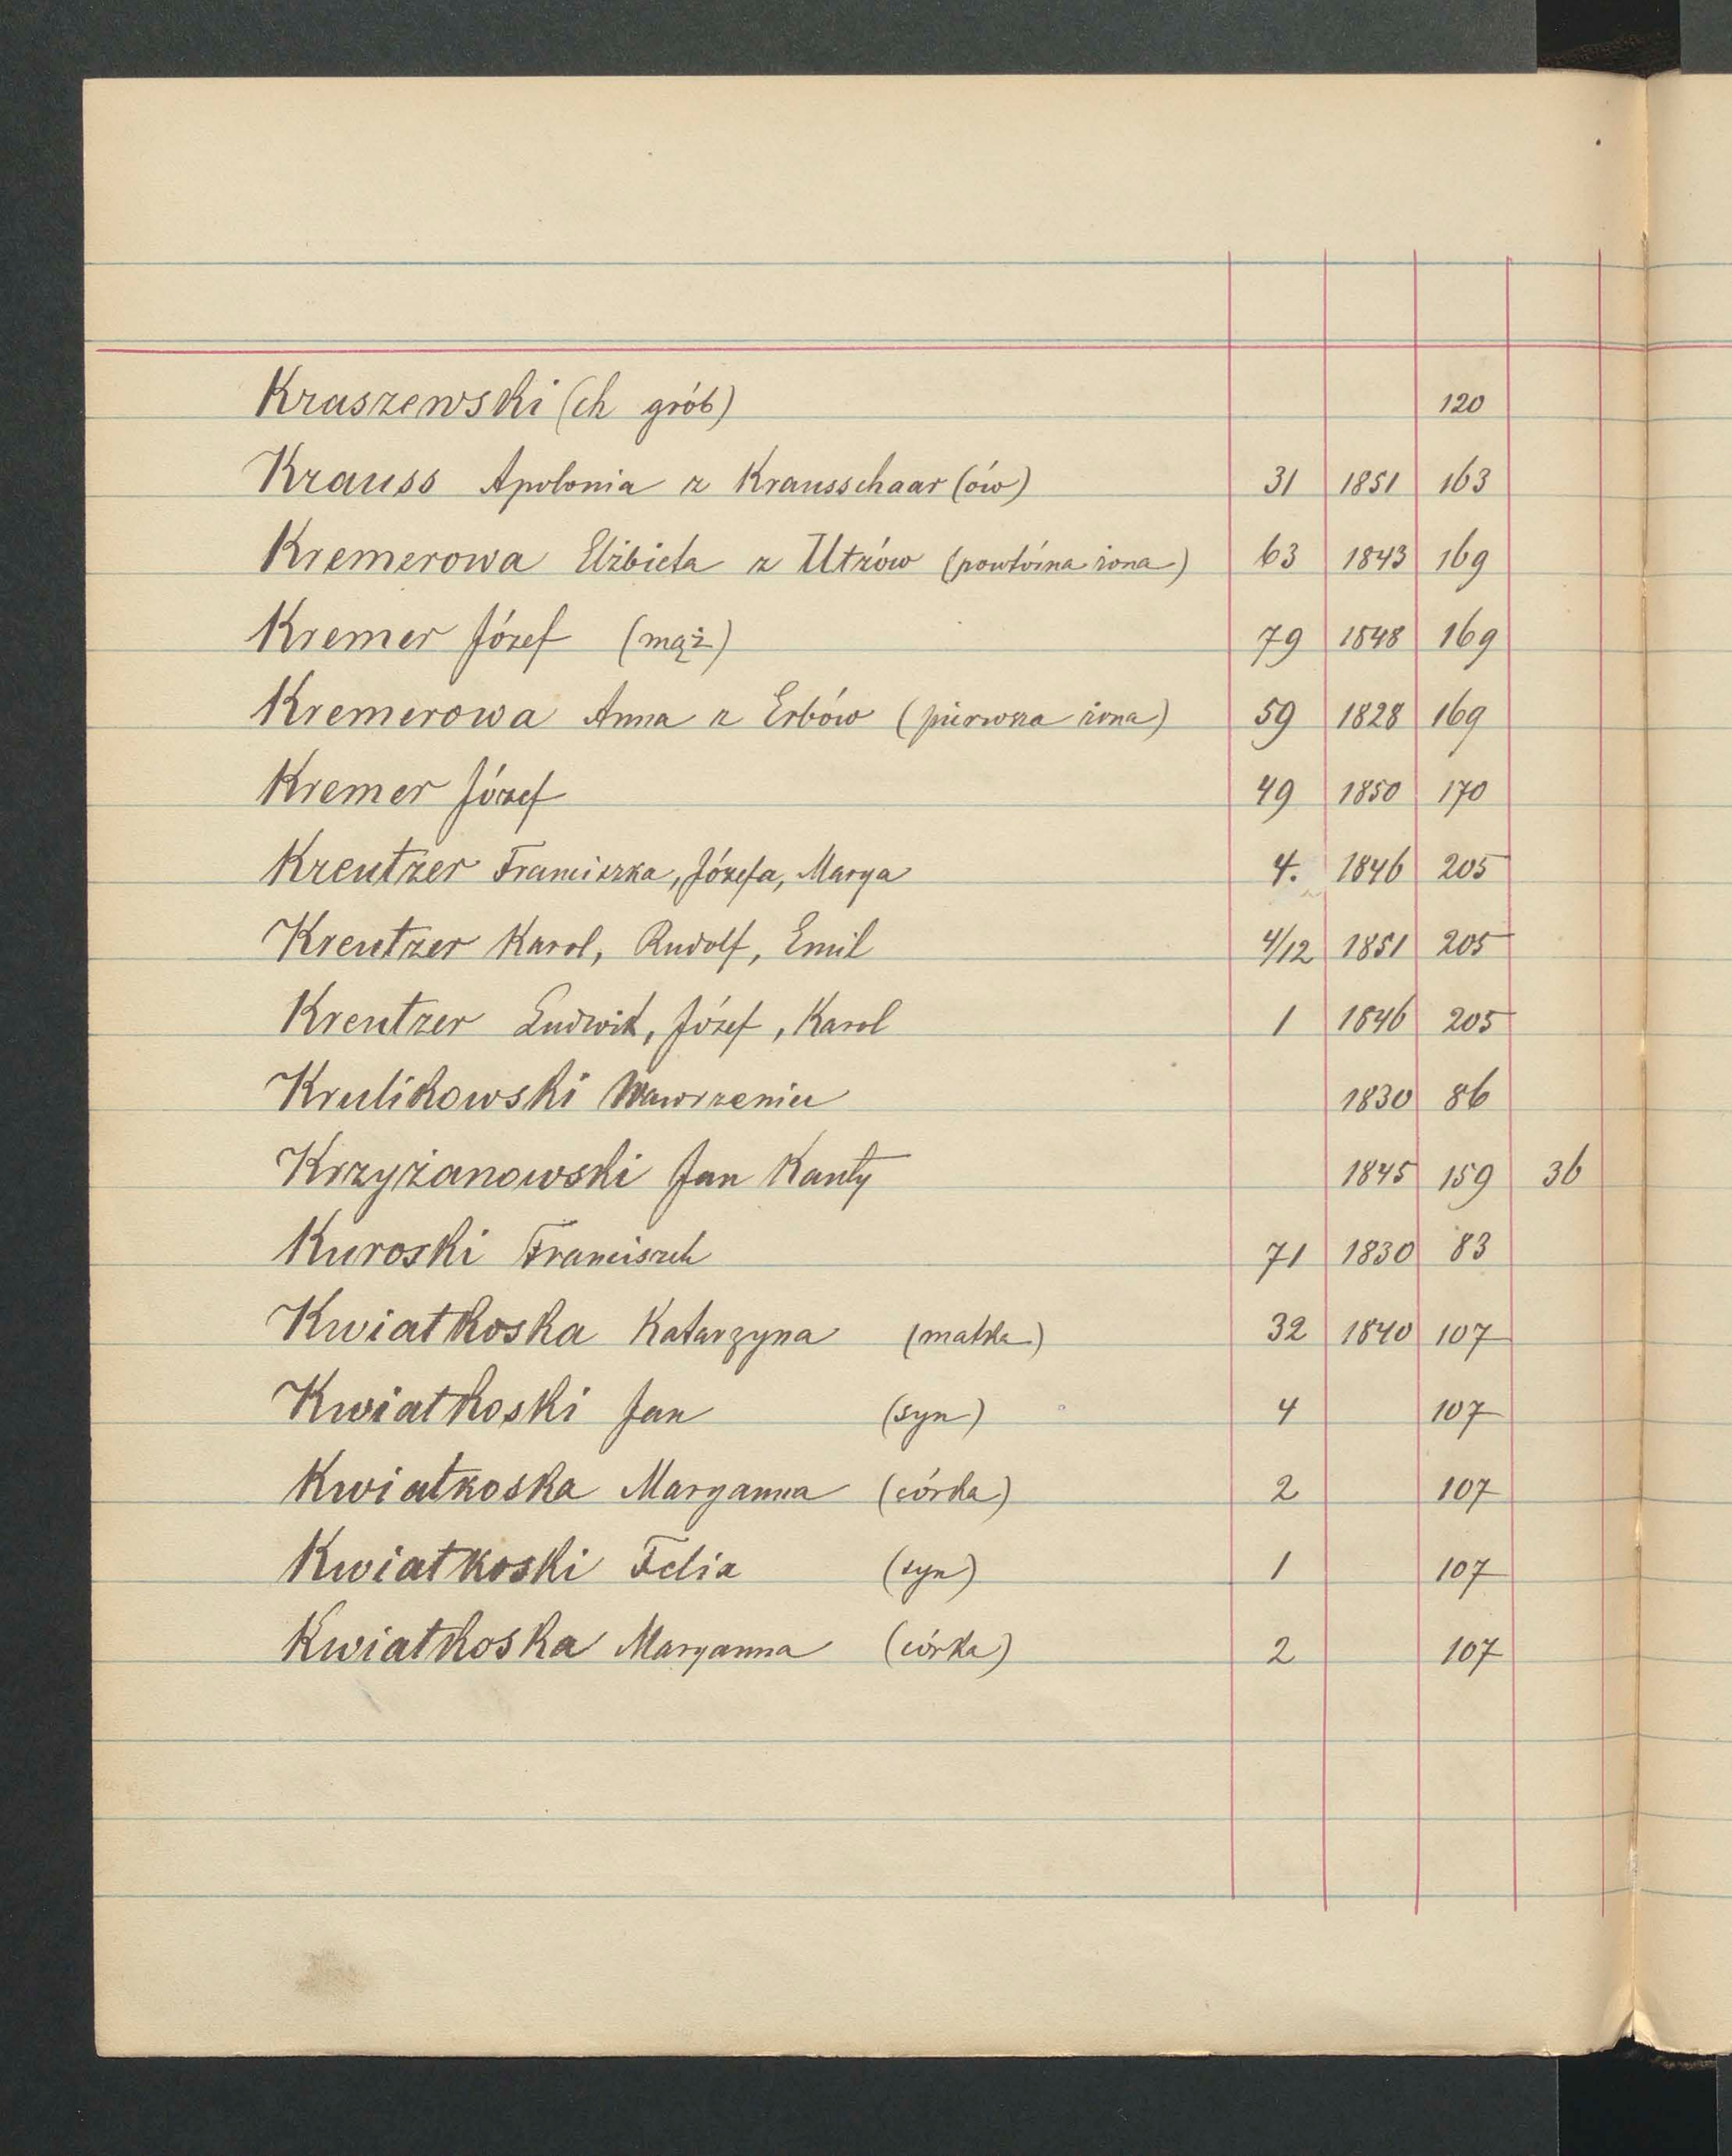 Kraszewski (ch grób) 120
Krauss Apolonia z Krausschaar (ów) 31 1851 163
Kremerowa Elżbieta z Utzów (powtórna żona) 63 1843 169
Kremer Józef (mąż) 79 1848 169
Kremerowa Anna z Erbów (pierwsza żona) 59 1828 169
Kremer Józef 49 1850 170
Kreutzer Franciszka, Józefa, Marya 4. 1846 205
Kreutzer Karol, Rudolf, Emil 4/12 1851 205
Kreutzer Ludwik, Józef, Karol 1 1846 205
Krulikowski Wawrzeniec 1830 86
Krzyżanowski Jan Kanty 1845 159 36
Kuroski Franciszek 71 1830 83
Kwiatkoska Katarzyna (matka) 32 1840 107
Kwiatkoski Jan (syn) 4 107
Kwiatkoska Maryanna (córka) 2 107
Kwiatkoski Felix (syn) 1 107
Kwiatkoska Maryanna (córka) 2 107